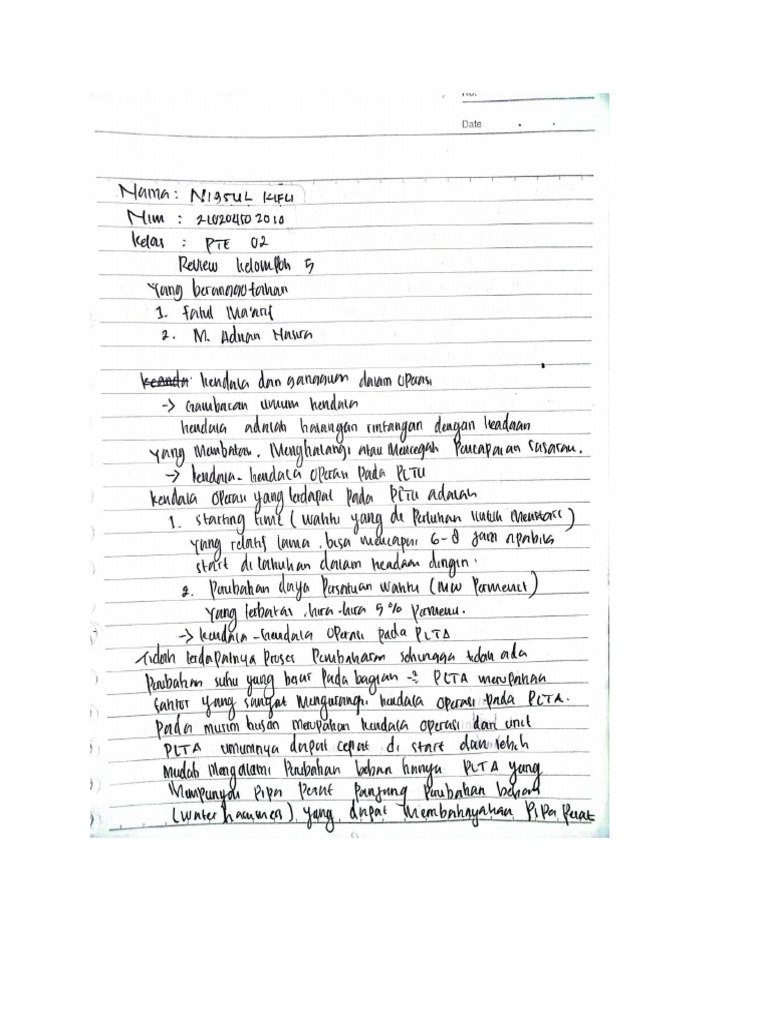 No.
Date
Nama :
Nim :
Kelas : PTE 02
Review kelompok 5
Yang beranggotakan
1. Fatul Ma'arif
2. M. Adnan
kendala dan gangguan dalam operasi
-> Gambaran umum kendala
kendala adalah halangan rintangan dengan keadaan
yang Membatasi, Menghalangi atau Mencegah Pencapaian Sasaran.
-> kendala-kendala Operasi Pada PLTU
kendala operasi yang terdapat pada PLTU adalah
1. Starting time (waktu yang di Perlukan untuk Menstart)
yang relatif lama, bisa mencapai 6-8 jam apabila
start di lakukan dalam keadaan dingin.
2. Perubahan daya Persatuan waktu (MW Permenit)
Yang terbatas, kira-kira 5% Permenit.
-> kendala-kendala Operasi pada PLTA
Tidak terdapatnya Proses Pembakaran sehingga tidak ada
Perubahan suhu yang besar Pada bagian -2 PLTA merupakan
faktor yang sangat Mengurangi kendala operasi pada PLTA.
Pada musim hujan merupakan kendala operasi dari unit
PLTA umumnya dapat cepat di start dan lebih
Mudah Mengalami Perubahan beban hanya PLTA yang
Mempunyai Pipa Pesat Panjang Perubahan beban
(water hammer) yang dapat Membahayakan Pipa Pesat